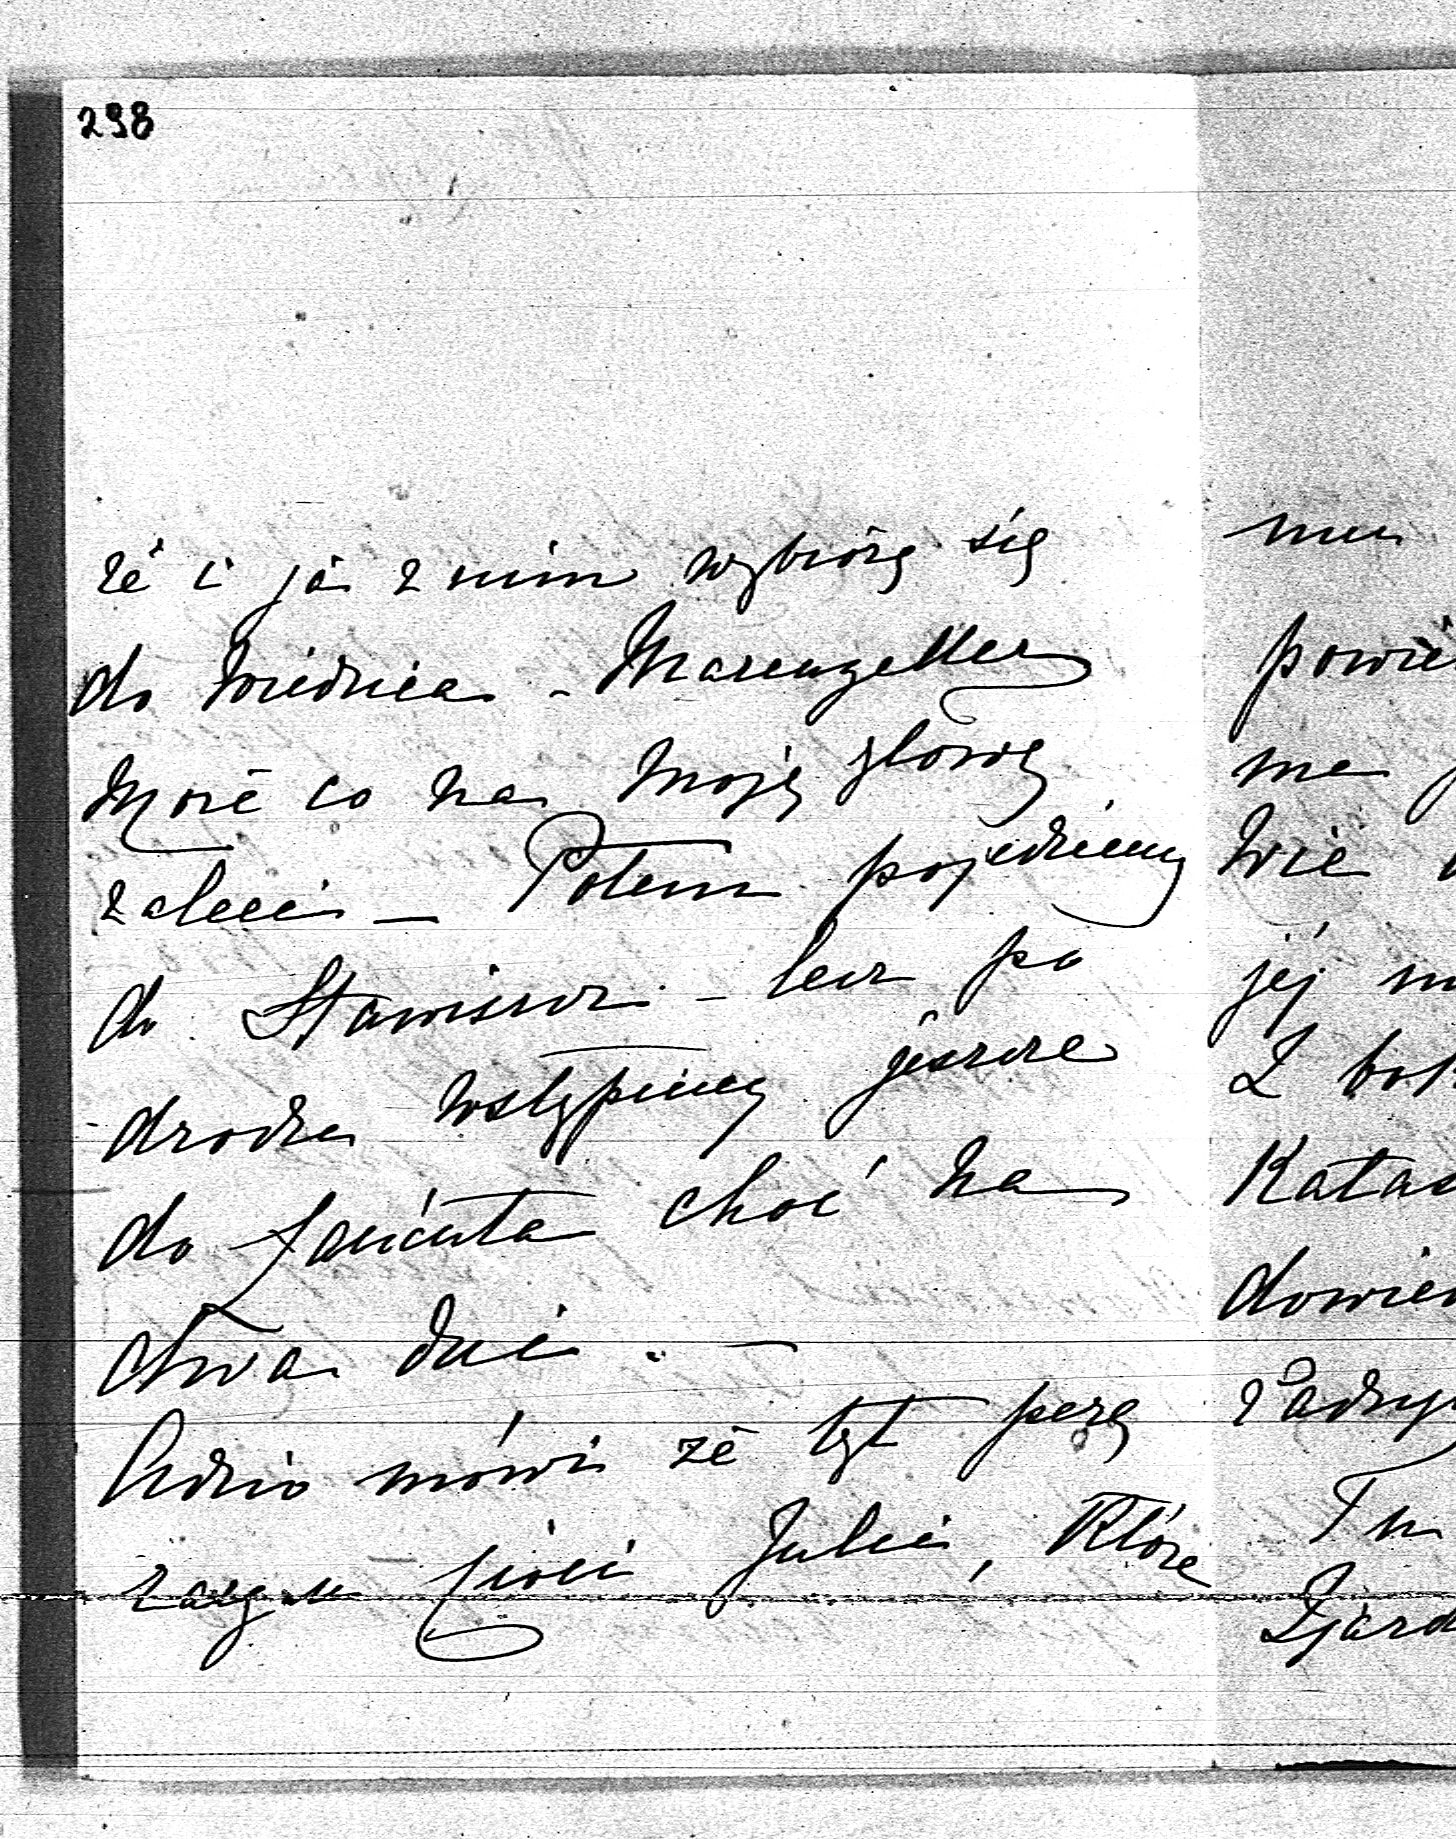 298
że i ja z nim wybiorę się
do Wiednia - Marenzeller
może co na moję głowę
zaleci - Potem pojedziemy
do Stawiszcz - lecz po
drodze wstąpiemy jeszcze
do Łańcuta choć na
dwa dni. -
Adzio mówi że był parę
razy u Cioci Julii, która
mu
powie
ma
Wie
jéj
Z
Katas
dowie
Zjard